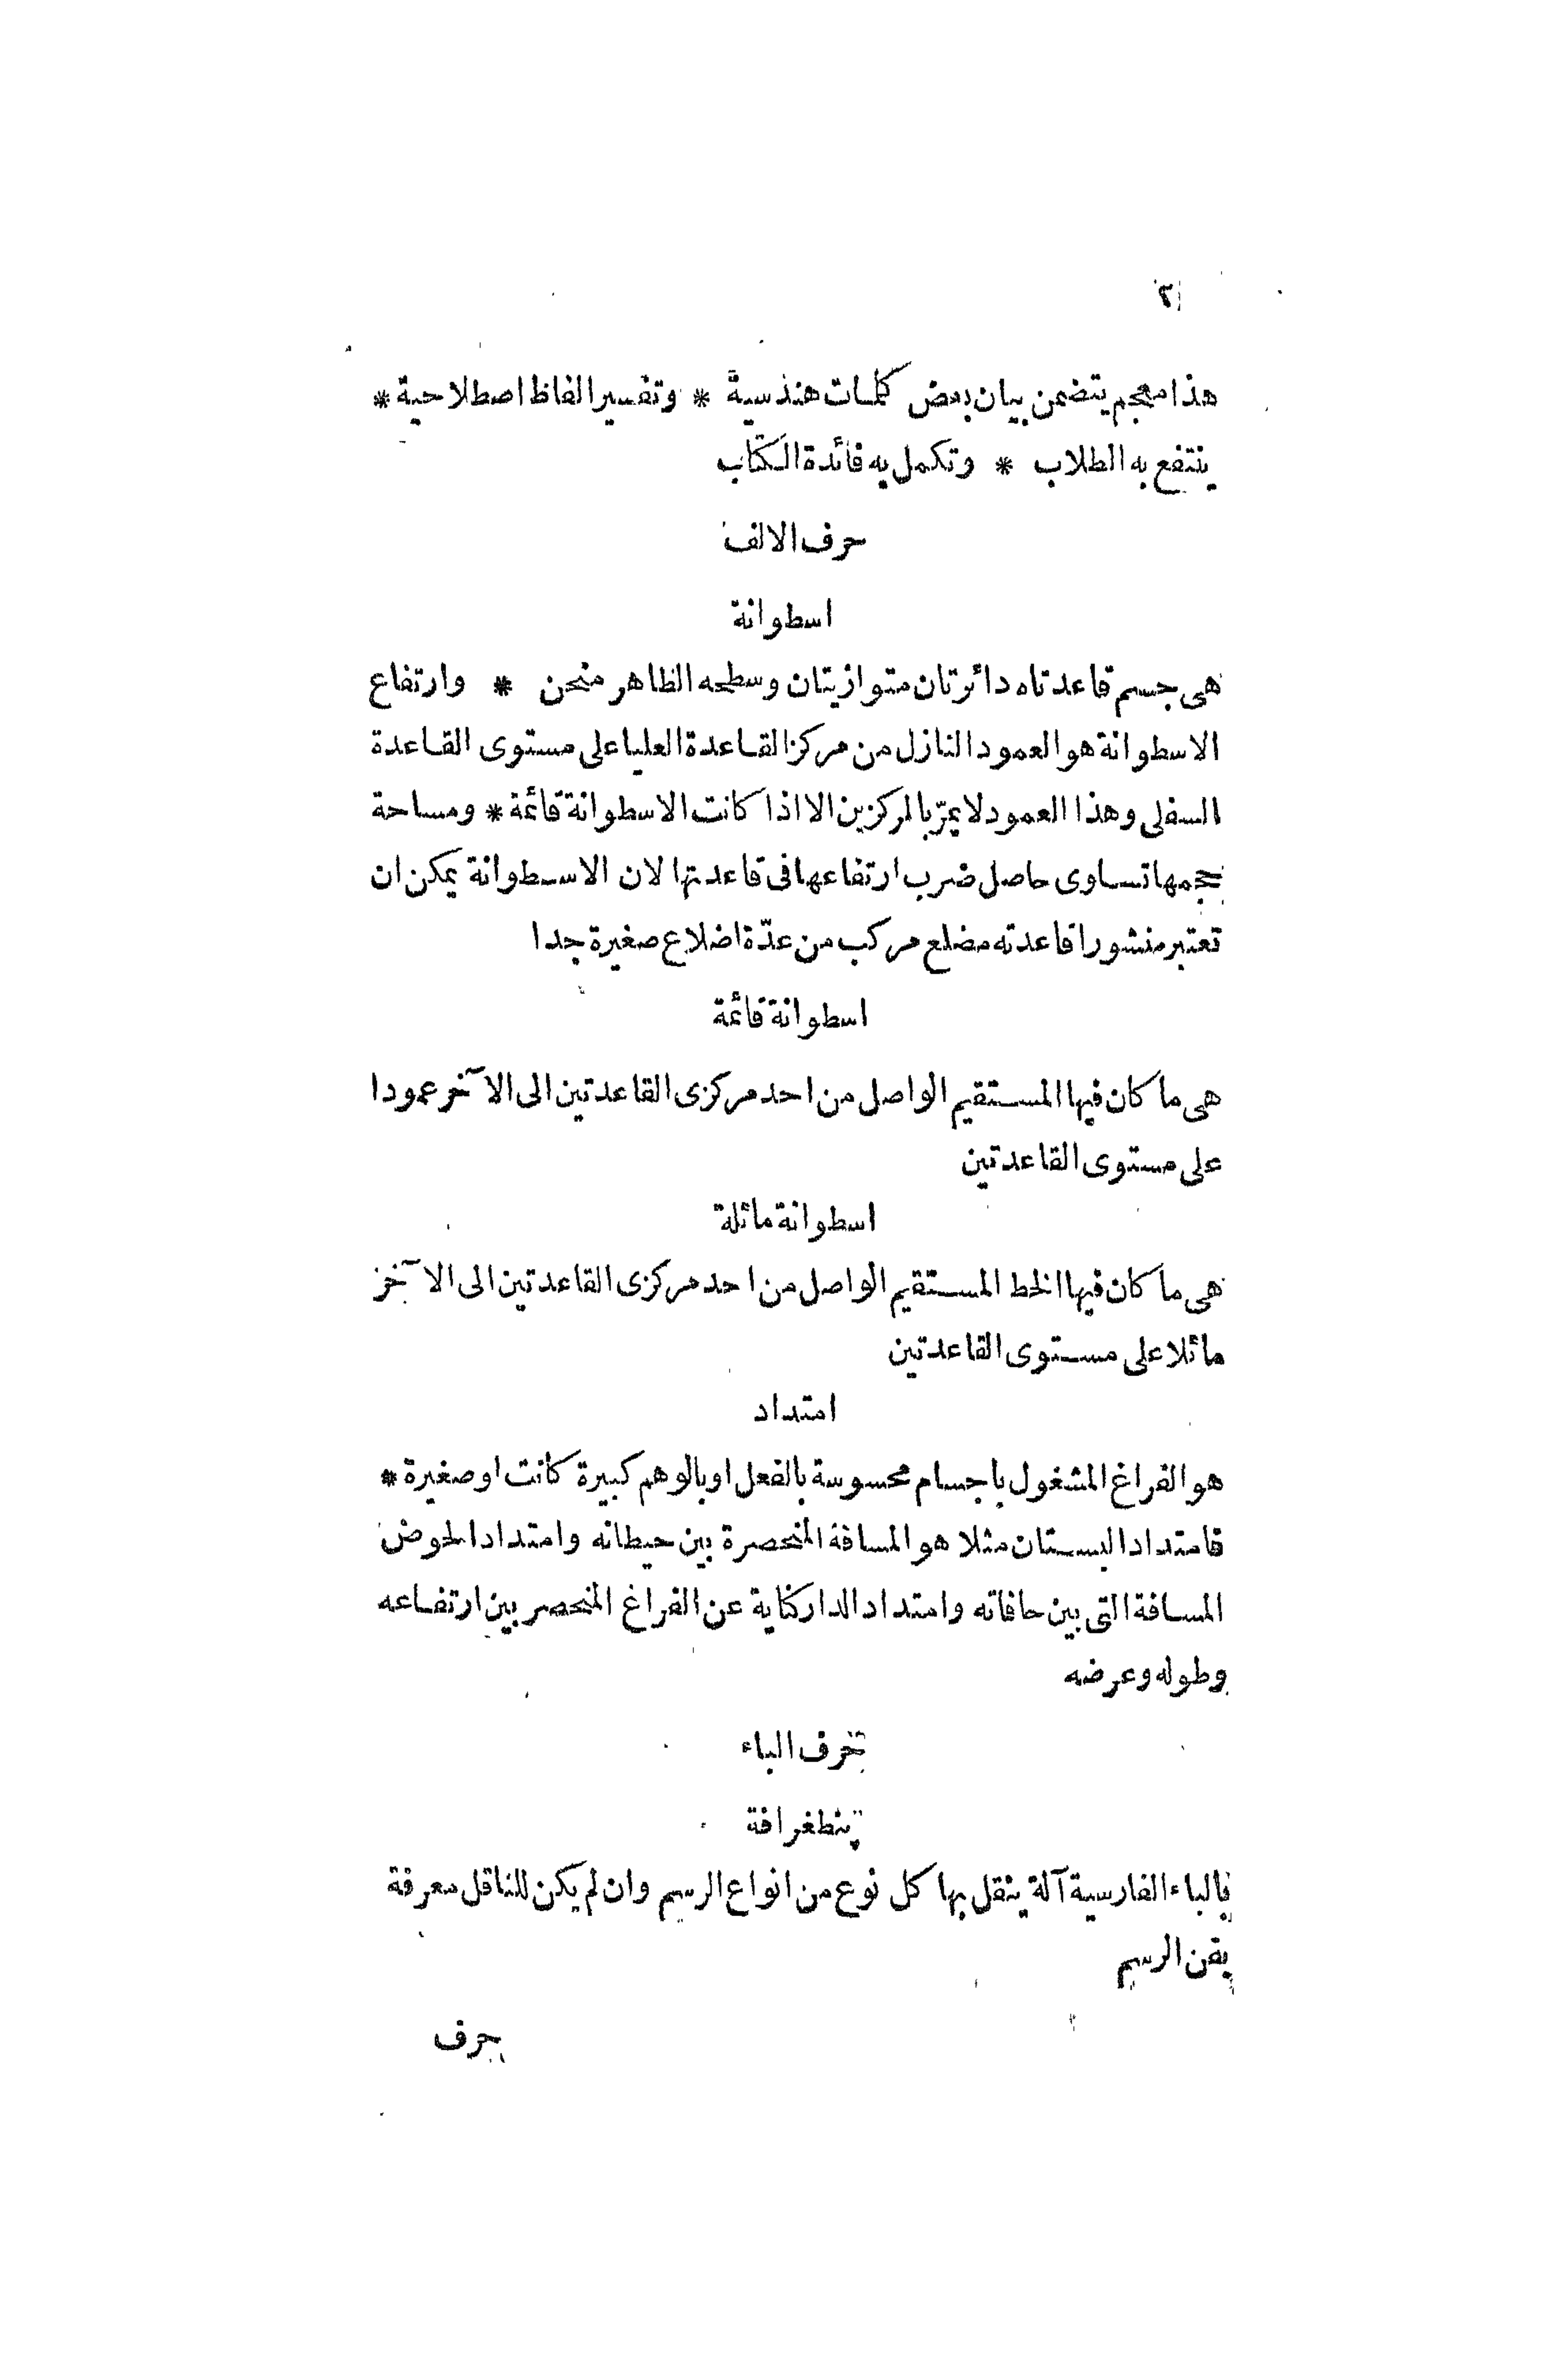 ٢
هذا معجم يتضمن بيان بعض كلمات هندسية * وتفسير الفاظ اصطلاحية *
ينتفع به الطلاب * وتكمل به فائدة الكتاب
حرف الالف
اسطوانة
هى جسم قاعدتاه دائرتان متوازيتان وسطحه الظاهر منحن * وارتفاع
الاسطوانة هو العمود النازل من مركز القاعدة العليا على مستوى القاعدة
السفلى وهذا العمود لا يمرّ بالمركزين الا اذا كانت الاسطوانة قائمة * ومساحة
حجمها تساوى حاصل ضرب ارتفاعها فى قاعدتها لان الاسطوانة يمكن ان
تعتبر منشورا قاعدته مضلع مركب من عدّة اضلاع صغيرة جدا
اسطوانة قائمة
هى ما كان فيها المستقيم الواصل من احد مركزى القاعدتين الى الآخر عمودا
على مستوى القاعدتين
اسطوانة مائلة
هى ما كان فيها الخط المستقيم الواصل من احد مركزى القاعدتين الى الآخر
مائلا على مستوى القاعدتين
امتداد
هو الفراغ المشغول باجسام محسوسة بالفعل او بالوهم كبيرة كانت او صغيرة *
فامتداد البستان مثلا هو المسافة المنحصرة بين حيطانه وامتداد الحوض
المسافة التى بين حافاته وامتداد الدار كناية عن الفراغ المنحصر بين ارتفاعه
وطوله وعرضه
حرف الباء
پنطغرافة
بالباء الفارسية آلة ينقل بها كل نوع من انواع الرسم وان لم يكن للناقل معرفة
بفن الرسم
حرف